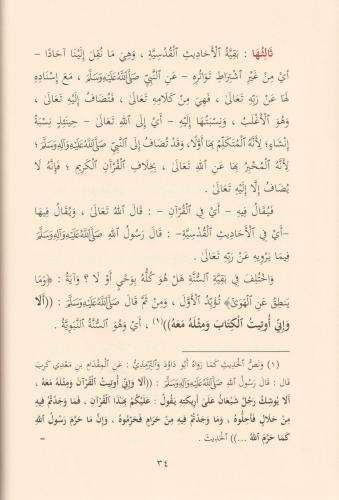 ثَالِثُهَا : بَقِيَّةُ الْأَحَادِيثِ الْقُدْسِيَّةِ ، وَهِيَ مَا نُقِلَ إِلَيْنَا آحَادًا –
أَيْ مِنْ غَيْرِ اشْتِرَاطِ تَوَاتُرِهِ – عَنِ النَّبِيِّ صَلَّى اللَّهُ عَلَيْهِ وَآلِهِ وَسَلَّمَ ، مَعَ إِسْنَادِهِ
لَهَا عَنْ رَبِّهِ تَعَالَى ، فَهِيَ مِنْ كَلَامِهِ تَعَالَى ، فَتُضَافُ إِلَيْهِ تَعَالَى ،
وَهُوَ الْأَغْلَبُ ، وَنِسْبَتُهَا إِلَيْهِ – أَيْ إِلَى اللهِ تَعَالَى – حِينَئِذٍ نِسْبَةُ
إِنْشَاءٍ؛ لِأَنَّهُ الْمُتَكَلِّمُ بِهَا أَوَّلًا، وَقَدْ تُضَافُ إِلَى النَّبِيِّ صَلَّى اللَّهُ عَلَيْهِ وَآلِهِ وَسَلَّمَ؛
لِأَنَّهُ الْمُخْبِرُ بِهَا عَنِ اللهِ تَعَالَى ، بِخِلَافِ الْقُرْآنِ الْكَرِيمِ ؛ فَإِنَّهُ لَا
يُضَافُ إِلَّا إِلَيْهِ تَعَالَى .
فَيُقَالُ فِيهِ – أَيْ فِي الْقُرْآنِ – : قَالَ اللهُ تَعَالَى ، وَيُقَالُ فِيهَا
–أَيْ فِي الْأَحَادِيثِ الْقُدْسِيَّةِ– : قَالَ رَسُولُ اللهِ صَلَّى اللَّهُ عَلَيْهِ وَآلِهِ وَسَلَّمَ
فِيمَا يَرْوِيهِ عَنْ رَبِّهِ تَعَالَى .
وَاخْتُلِفَ فِي بَقِيَّةِ السُّنَّةِ هَلْ هُوَ كُلُّهُ بِوَحْيٍ أَوْ لَا ؟ وَآيَةُ : ﴿وَمَا
يَنطِقُ عَنِ الْهَوَىٰ﴾ تُؤَيِّدُ الْأَوَّلَ ، وَمِنْ ثَمَّ قَالَ صَلَّى اللَّهُ عَلَيْهِ وَآلِهِ وَسَلَّمَ : ((أَلَا
وَإِنِّي أُوتِيتُ الْكِتَابَ وَمِثْلَهُ مَعَهُ))(١) ، أَيْ وَهُوَ السُّنَّةُ النَّبَوِيَّةُ .
(١) وَنَصُّ الْحَدِيثِ كَمَا رَوَاهُ أَبُو دَاوُدَ وَالتِّرْمِذِيُّ : عَنِ الْمِقْدَامِ بْنِ مَعْدِي كَرِبَ
قَالَ : قَالَ رَسُولُ اللهِ صَلَّى اللَّهُ عَلَيْهِ وَآلِهِ وَسَلَّمَ : ((أَلَا وَإِنِّي أُوتِيتُ الْقُرْآنَ وَمِثْلَهُ مَعَهُ ،
أَلَا يُوشِكُ رَجُلٌ شَبْعَانُ عَلَى أَرِيكَتِهِ يَقُولُ : عَلَيْكُمْ بِهَذَا الْقُرْآنِ ، فَمَا وَجَدْتُمْ فِيهِ
مِنْ حَلَالٍ فَأَحِلُّوهُ ، وَمَا وَجَدْتُمْ فِيهِ مِنْ حَرَامٍ فَحَرِّمُوهُ ، وَإِنَّ مَا حَرَّمَ رَسُولُ اللهِ
كَمَا حَرَّمَ اللهُ ...)) الْحَدِيثَ . =
٣٤